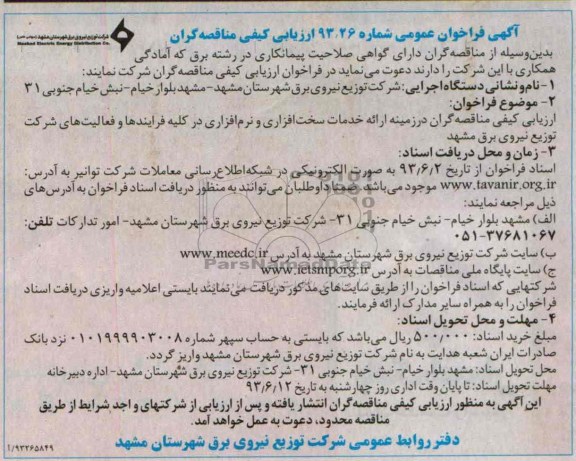 آگهی فراخوان عمومی شماره ۹۳.۲۶ ارزیابی کیفی مناقصه‌گران
شرکت توزیع نیروی برق شهرستان مشهد
Mashhad Electric Energy Distribution Co.
بدین‌وسیله از مناقصه‌گران دارای گواهی صلاحیت پیمانکاری در رشته برق که آمادگی
همکاری با این شرکت را دارند دعوت می‌نماید در فراخوان ارزیابی کیفی مناقصه‌گران شرکت نمایند:
۱- نام و نشانی دستگاه اجرایی: شرکت توزیع نیروی برق شهرستان مشهد- مشهد بلوار خیام- نبش خیام جنوبی ۳۱
۲- موضوع فراخوان:
ارزیابی کیفی مناقصه‌گران درزمینه ارائه خدمات سخت‌افزاری و نرم‌افزاری در کلیه فرایندها و فعالیت‌های شرکت
توزیع نیروی برق مشهد
۳- زمان و محل دریافت اسناد:
اسناد فراخوان از تاریخ ۹۳/۶/۲ به صورت الکترونیکی در شبکه اطلاع‌رسانی معاملات شرکت توانیر به آدرس:
www.tavanir.org.ir موجود می‌باشد. ضمنا داوطلبان می‌توانند به منظور دریافت اسناد فراخوان به آدرس‌های
ذیل مراجعه نمایند:
الف) مشهد بلوار خیام- نبش خیام جنوبی ۳۱- شرکت توزیع نیروی برق شهرستان مشهد- امور تدارکات تلفن:
۰۵۱-۳۷۶۸۱۰۶۷
ب) سایت شرکت توزیع نیروی برق شهرستان مشهد به آدرس www.meedc.ir
ج) سایت پایگاه ملی مناقصات به آدرس www.ietsmporg.ir
ParsNamadData
شرکتهایی که اسناد فراخوان را از طریق سایت‌های مذکور دریافت می‌نمایند بایستی اعلامیه واریزی دریافت اسناد
فراخوان را به همراه سایر مدارک ارائه فرمایند.
۴- مهلت و محل تحویل اسناد:
مبلغ خرید اسناد: ۵۰۰,۰۰۰ ریال می‌باشد که بایستی به حساب سپهر شماره ۰۱۰۱۹۹۹۹۰۳۰۰۸ نزد بانک
صادرات ایران شعبه هدایت به نام شرکت توزیع نیروی برق شهرستان مشهد واریز گردد.
محل تحویل اسناد: مشهد بلوار خیام- نبش خیام جنوبی ۳۱- شرکت توزیع نیروی برق شهرستان مشهد- اداره دبیرخانه
مهلت تحویل اسناد: تا پایان وقت اداری روز چهارشنبه به تاریخ ۹۳/۶/۱۲
این آگهی به منظور ارزیابی کیفی مناقصه‌گران انتشار یافته و پس از ارزیابی از شرکتهای واجد شرایط از طریق
مناقصه محدود، دعوت به عمل خواهد آمد.
دفتر روابط عمومی شرکت توزیع نیروی برق شهرستان مشهد
۱/۹۳۲۶۵۸۴۹